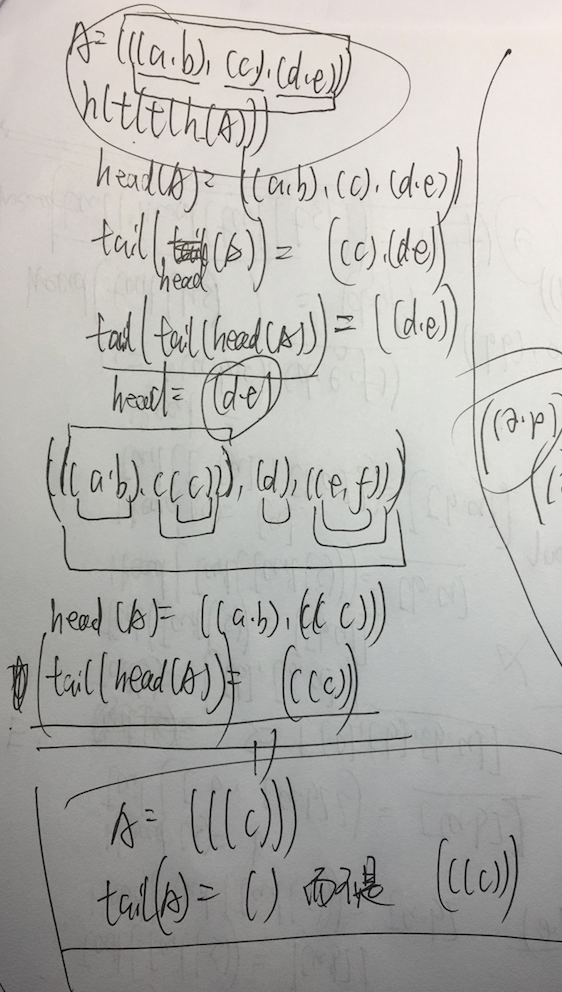 A= (((a.b), (c), (d.e)))
h(t(t(h(A))
head(A)= ((a.b), (c), (d.e))
tail(head(A))= ((c).(d.e))
tail(tail(head(A)) = ((d.e))
head= (d.e)
(((a.b).((c))), (d), ((e,f)))
head(A)= ((a.b), ((c))
(tail(head(A))= (((c))
A= (((c)))
tail(A)= () 而不是 (((c))